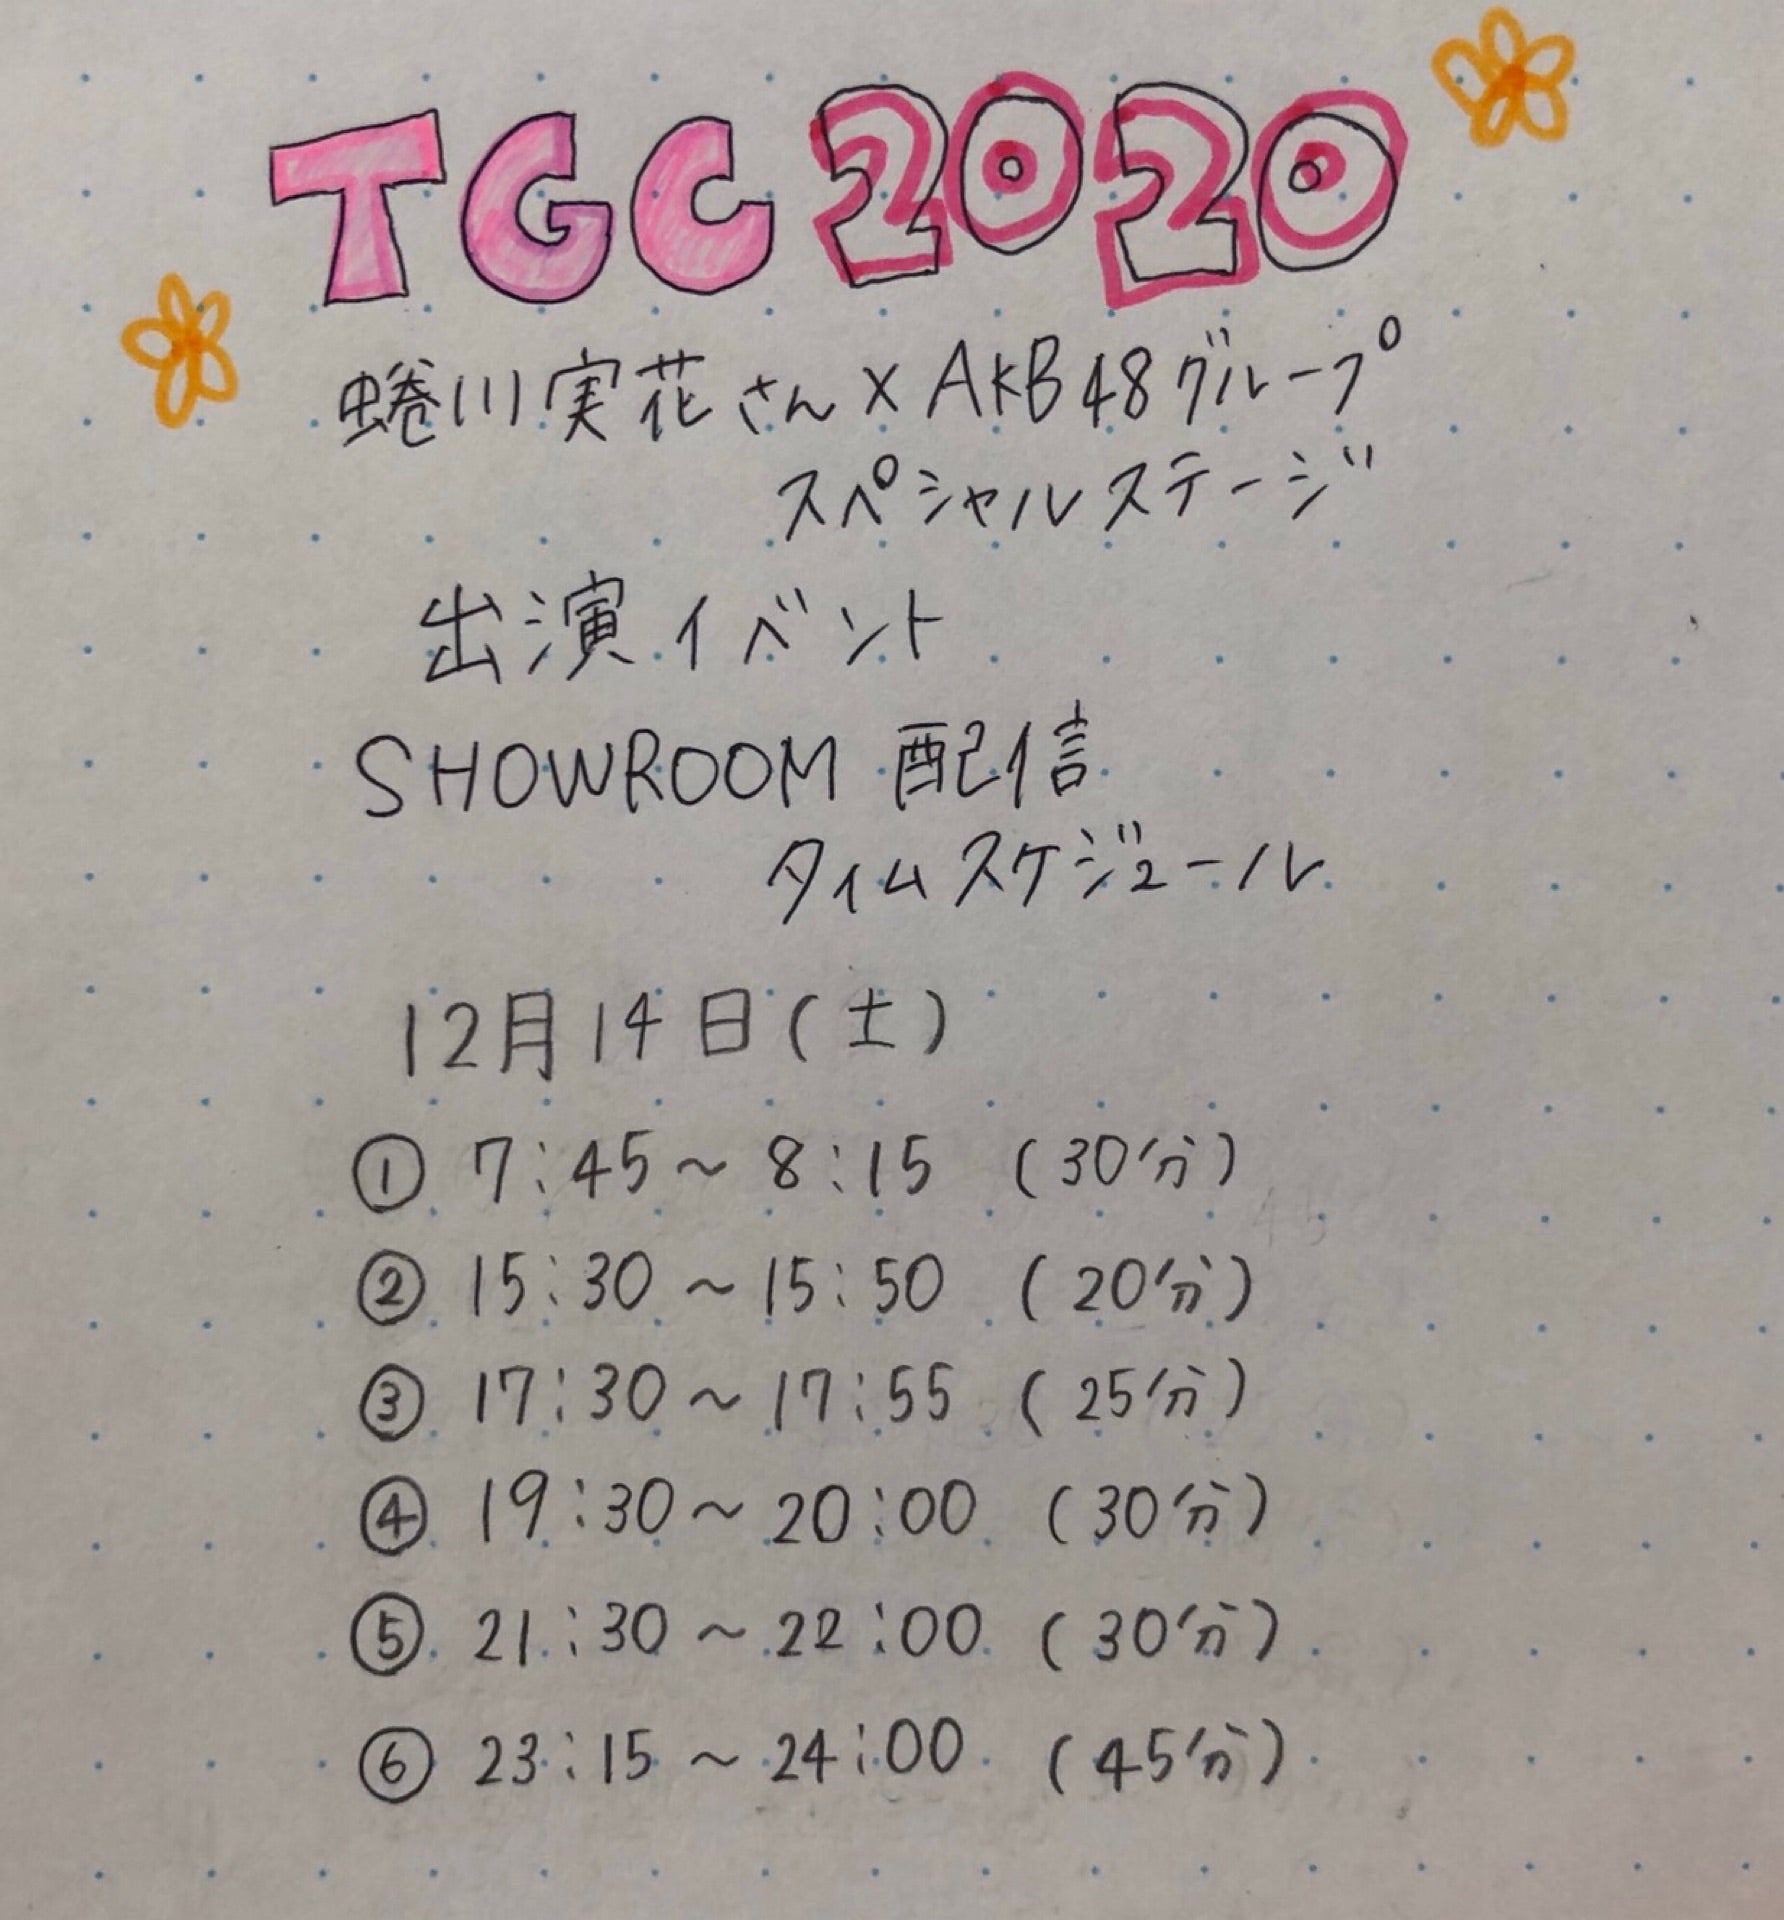 TGC2020
蜷川実花さん×AKB48グループ
スペシャルステージ
出演イベント
SHOWROOM 配信
タイムスケジュール
12月14日(土)
① 7:45～8:15 (30分)
② 15:30～15:50 (20分)
③ 17:30～17:55 (25分)
④ 19:30～20:00 (30分)
⑤ 21:30～22:00 (30分)
⑥ 23:15～24:00 (45分)